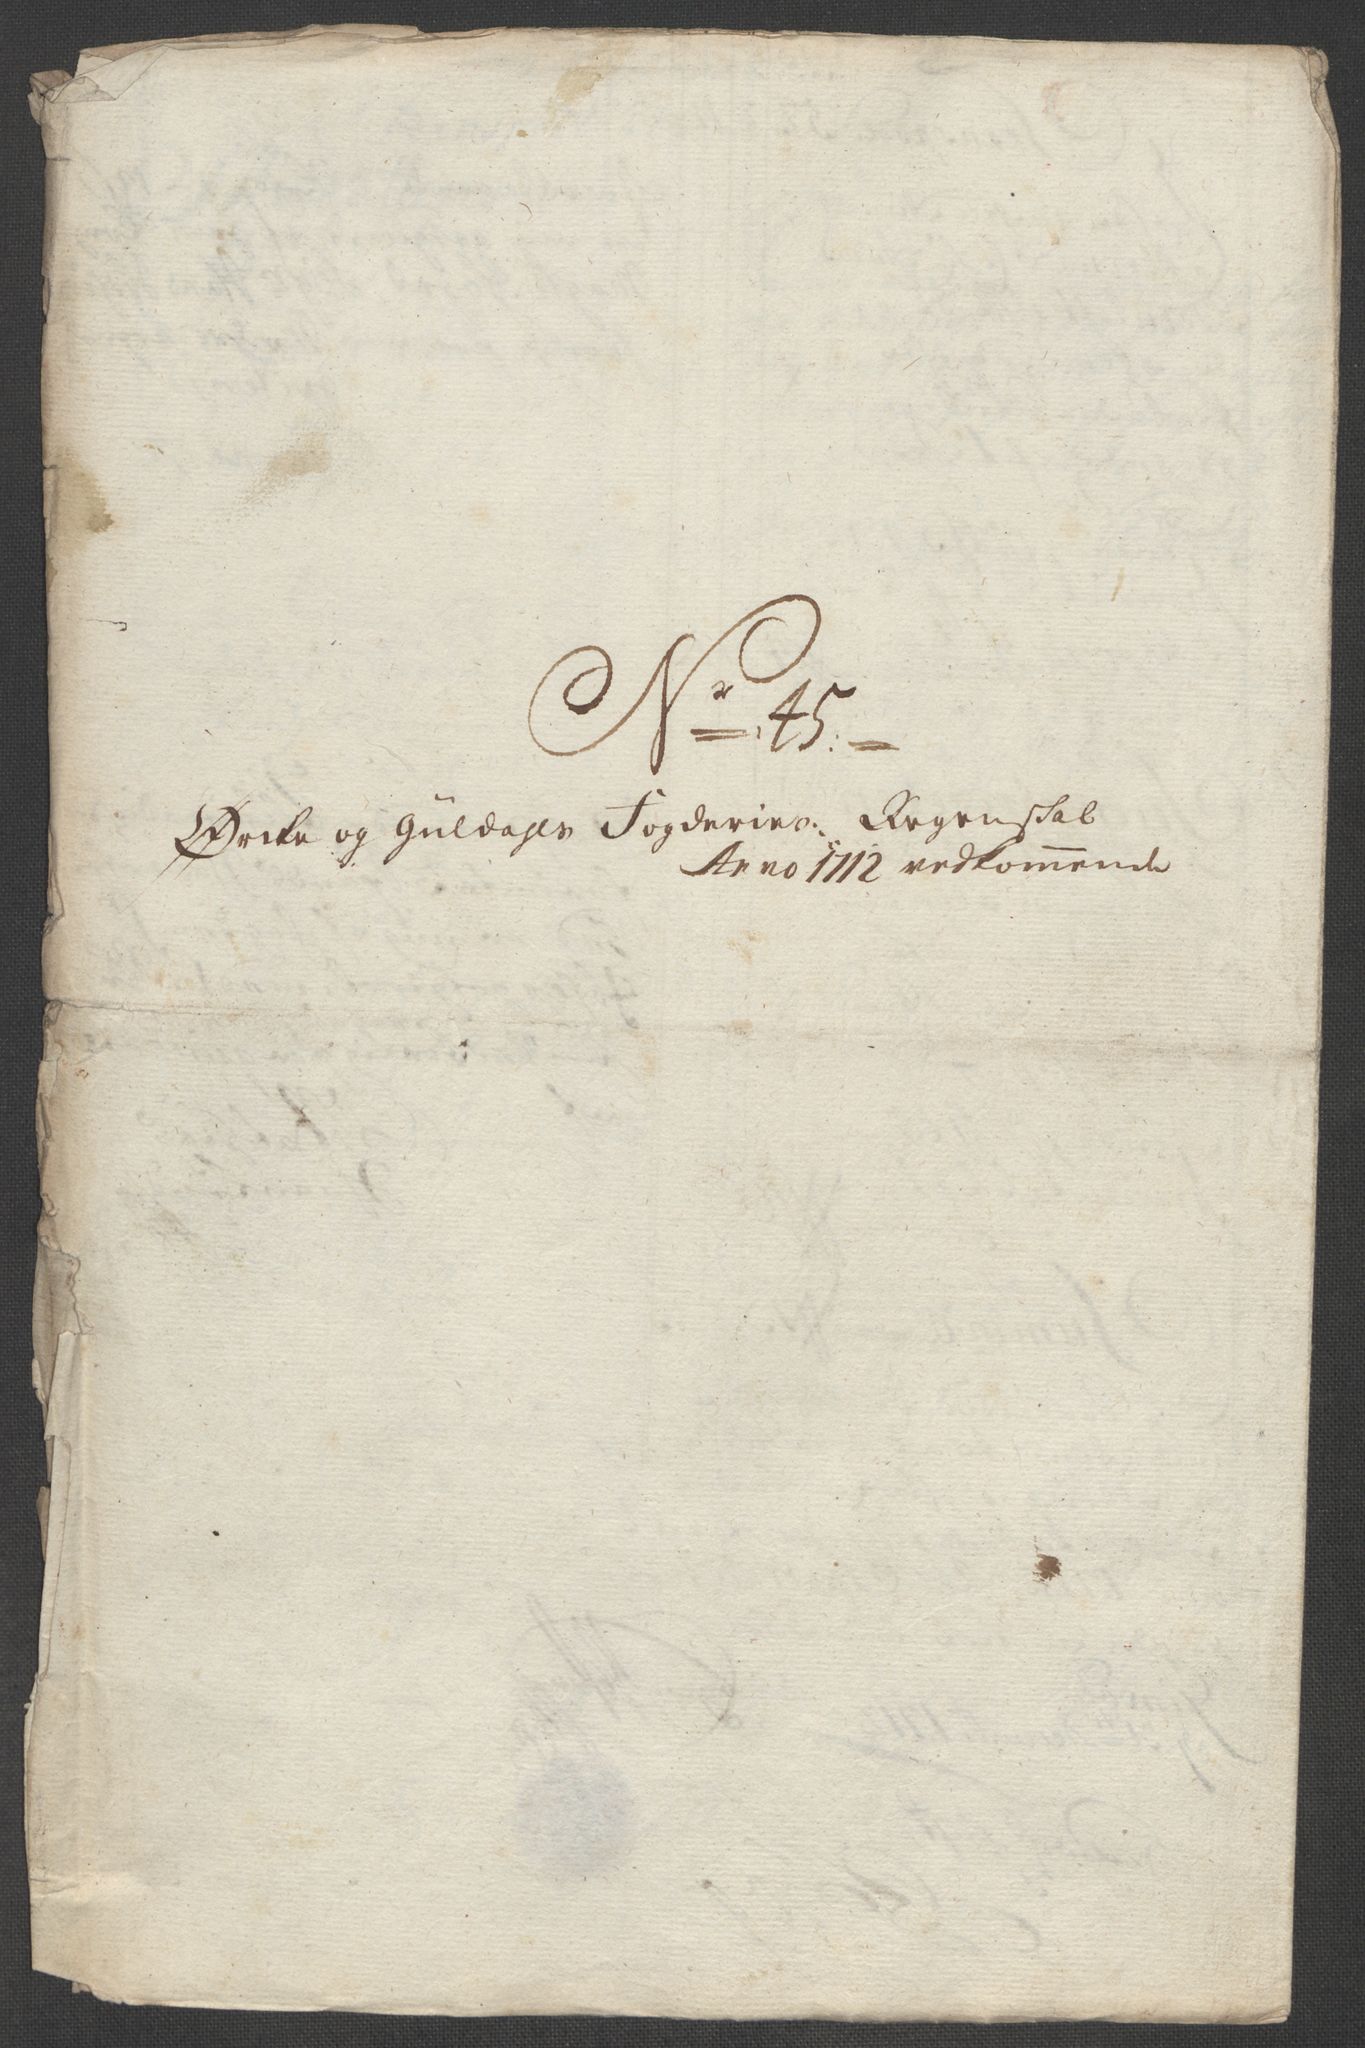 Nr 45.
Örcke og Guldahls Fogderies Regenskab
Anno 1712 vedkom̅ende